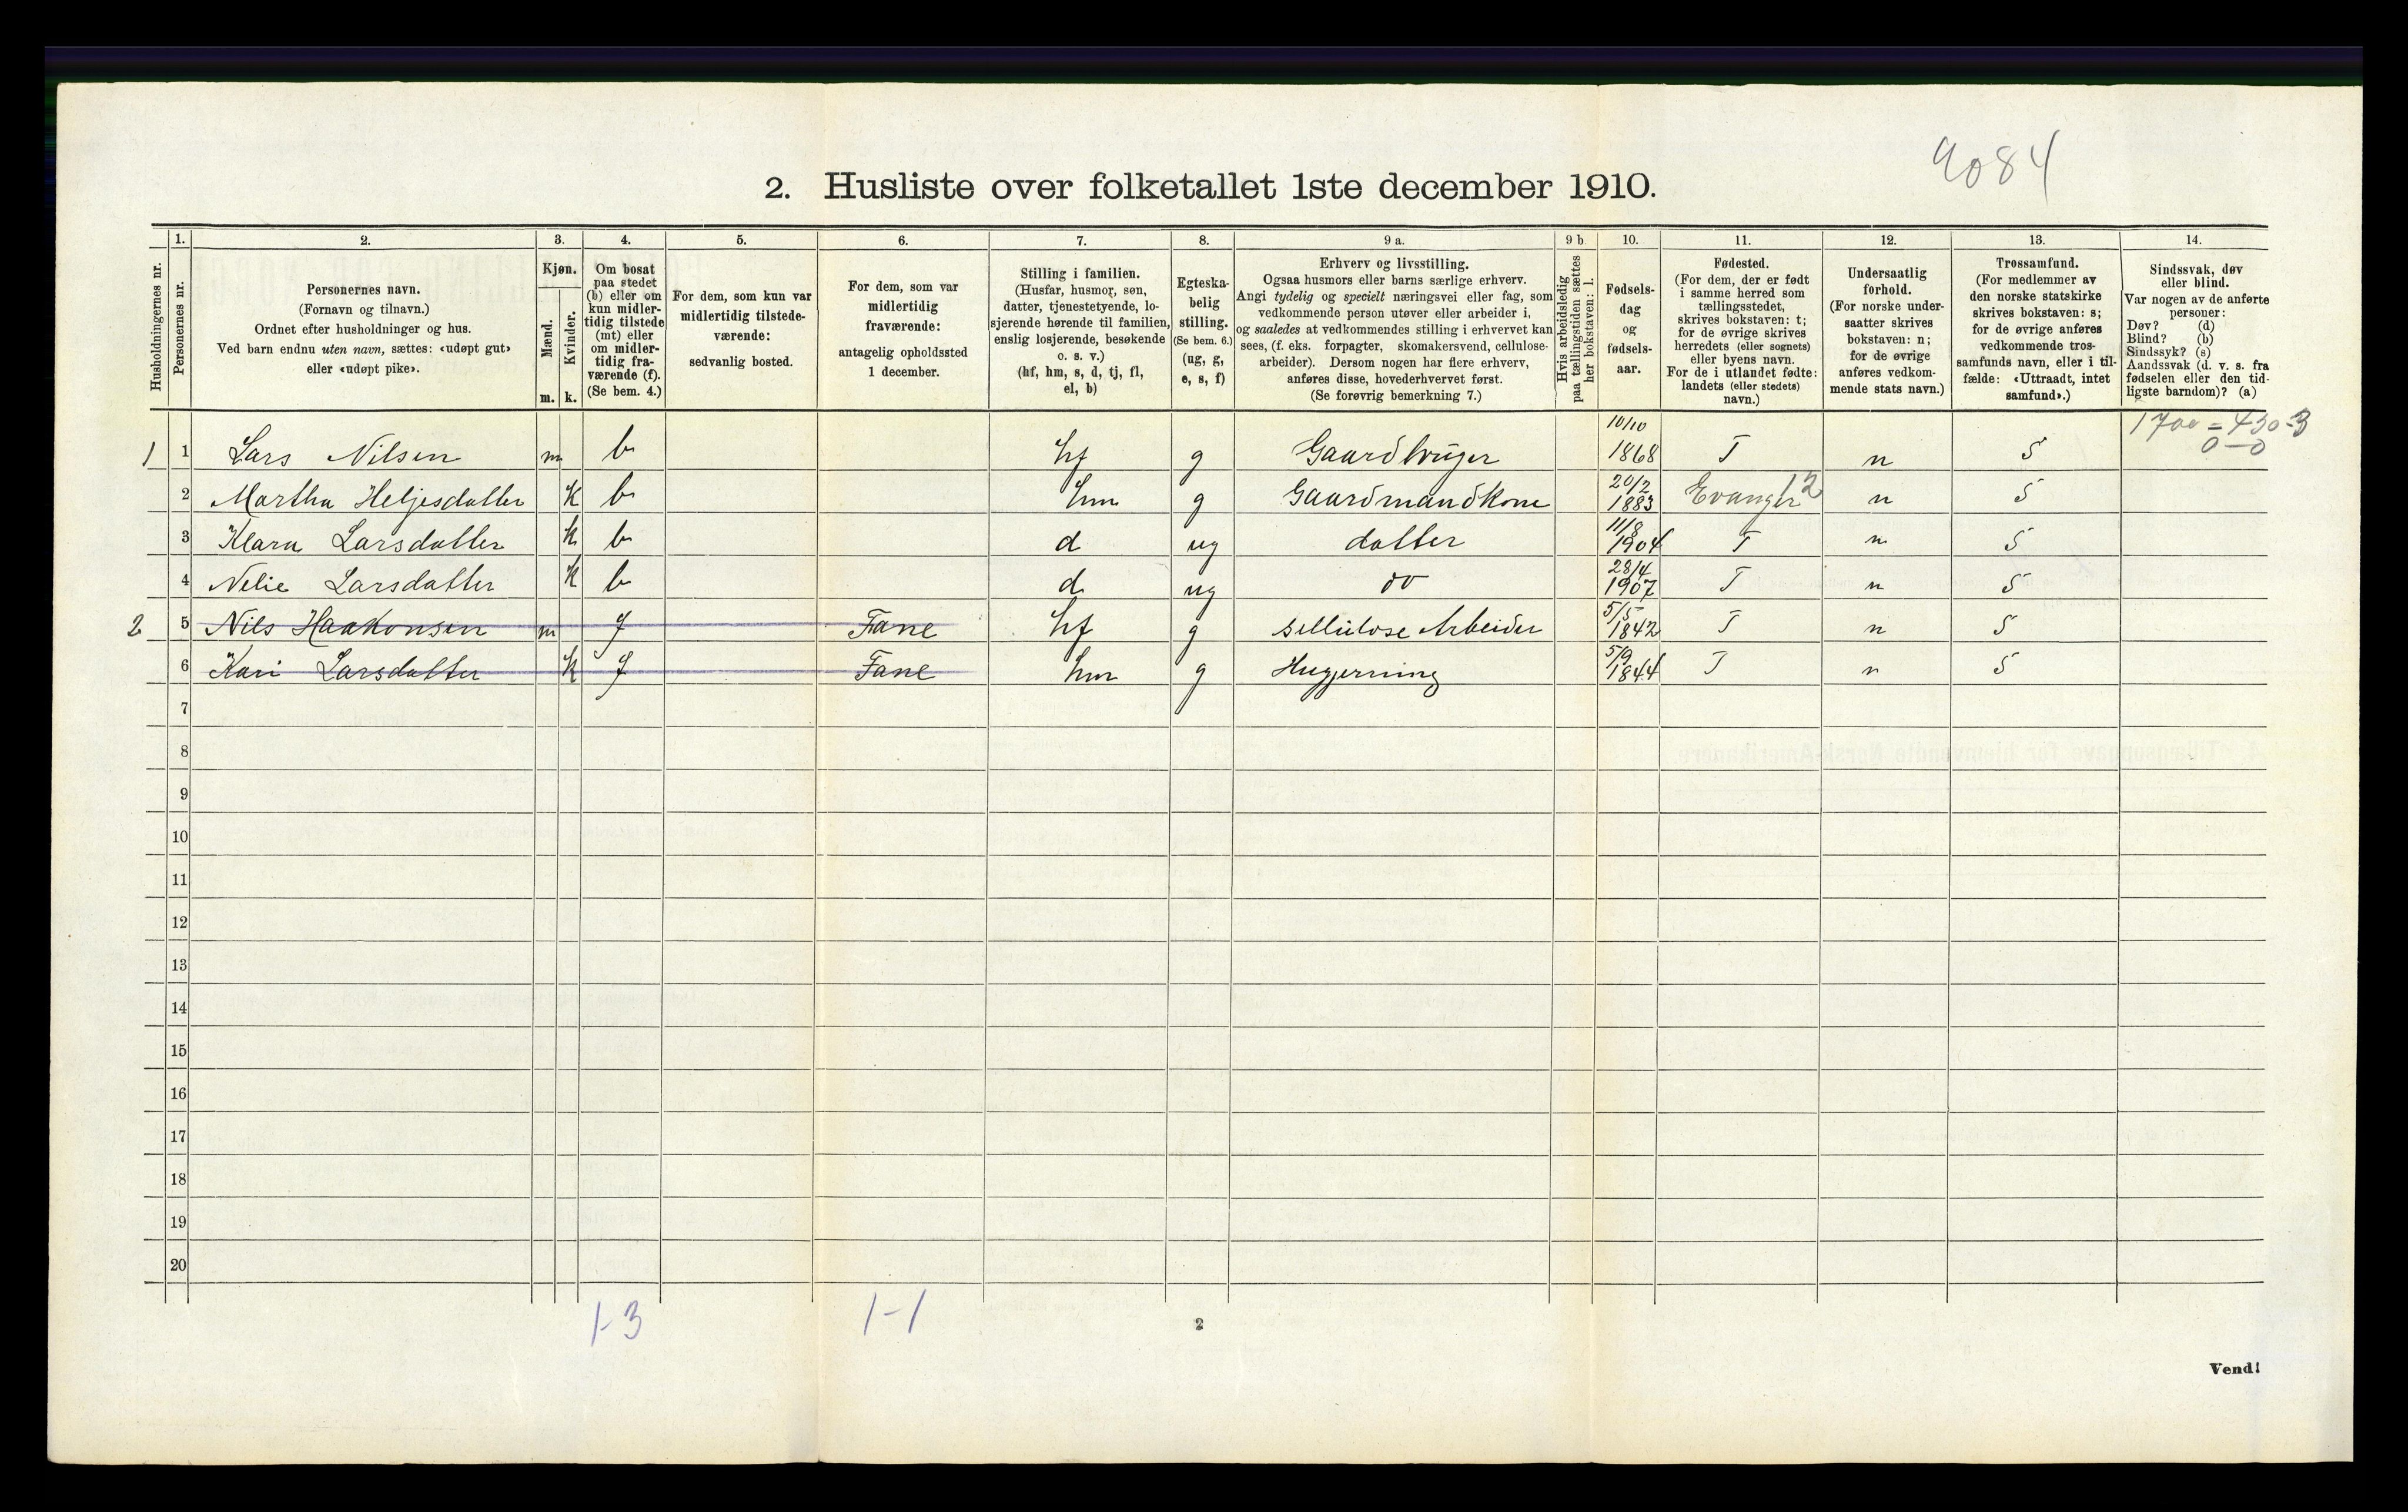 9084
2. Husliste over folketallet 1ste december 1910.
1. 2. 3. 4. 5. 6. 7. 8. 9 a. 9 b 10. 11. 12. 13. 14.
Husholdningernes nr.
Personernes nr.
Personernes navn.
(Fornavn og tilnavn.)
Ordnet efter husholdninger og hus.
Ved barn endnu uten navn, sættes: «udøpt gut»
eller «udøpt pike».
Kjøn.
Mænd.
Kvinder.
m. k.
Om bosat
paa stedet
(b) eller om
kun midler-
tidig tilstede
(mt) eller
om midler-
tidig fra-
værende (f).
(Se bem. 4.)
For dem, som kun var
midlertidig tilstede-
værende:
sedvanlig bosted.
For dem, som var
midlertidig
fraværende:
antagelig opholdssted
1 december.
Stilling i familien.
(Husfar, husmor, søn,
datter, tjenestetyende, lo-
sjerende hørende til familien,
enslig losjerende, besøkende
o. s. v.)
(hf, hm, s, d, tj, fl,
el, b)
Egteska-
belig
stilling.
(Se bem. 6.)
(ug, g,
e, s, f)
Erhverv og livsstilling.
Ogsaa husmors eller barns særlige erhverv.
Angi tydelig og specielt næringsvei eller fag, som
vedkommende person utøver eller arbeider i,
og saaledes at vedkommendes stilling i erhvervet kan
sees, (f. eks. forpagter, skomakersvend, cellulose-
arbeider). Dersom nogen har flere erhverv,
anføres disse, hovederhvervet først.
(Se forøvrig bemerkning 7.)
Hvis arbeidsledig
paa tællingstiden sættes
her bokstaven: l.
Fødsels-
dag
og
fødsels-
aar.
Fødested.
(For dem, der er født
i samme herred som
tællingsstedet,
skrives bokstaven: t;
for de øvrige skrives
herredets (eller sognets)
eller byens navn.
For de i utlandet fødte:
landets (eller stedets)
navn.)
Undersaatlig
forhold.
(For norske under-
saatter skrives
bokstaven: n;
for de øvrige
anføres vedkom-
mende stats navn.)
Trossamfund.
(For medlemmer av
den norske statskirke
skrives bokstaven: s;
for de øvrige anføres
vedkommende tros-
samfunds navn, eller i til-
fælde: «Uttraadt, intet
samfund».)
Sindssvak, døv
eller blind.
Var nogen av de anførte
personer:
Døv? (d)
Blind? (b)
Sindssyk? (s)
Aandssvak (d. v. s. fra
fødselen eller den tid-
ligste barndom)? (a)
1700 = 450-3
0-0
1 1 Lars Nilsen m b hf g Gaardbruger 10/10 1868 T n S
2 Martha Heljesdatter K b hm g Gaardmandkone 20/2 1883 Evanger 12 n S
3 Klara Larsdatter k b d ug datter 11/8 1904 T n S
4 Nelie Larsdatter K b d ug do 28/4 1907 T n S
2 5 Nils Haakonsen m f Fane hf g sellulose Arbeider 5/5 1842 T n S
6 Kari Larsdatter K f Fane hm g Hugjerning 5/9 1844 T n S
7
8
9
10
11
12
13
14
15
16
17
18
19
20
1-3 1-1
2
Vend!